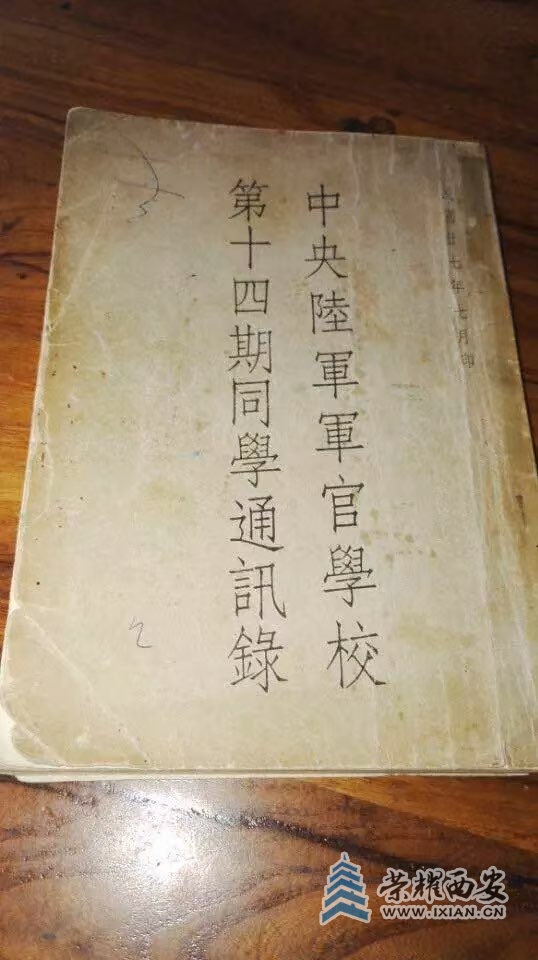 民國廿七年七月印
中央陸軍軍官學校
第十四期同學通訊錄
荣耀西安
WWW.IXIAN.CN